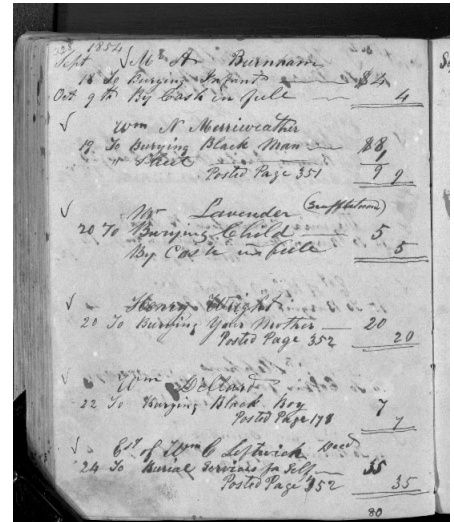 1854
Sept √ M A Burnham
18 To Burying Infant $4
Oct 9th By Cash in full 4
√ Wm N Merriweather
19 To Burying Black Man $8
" Sheet 1
Posted Page 351 9 9
√ Mr Lavender
20 To Burying Child 5
By Cash in full 5
√ Henry Wright
20 To Burying Your Mother 20
Posted Page 352 20
√ Wm Dillard
22 To Burying Black Boy 7
Posted Page 178 7
√ Est of Wm C Leftwich Decd
24 To Burial Services for Self 35
Posted Page 352 35
80